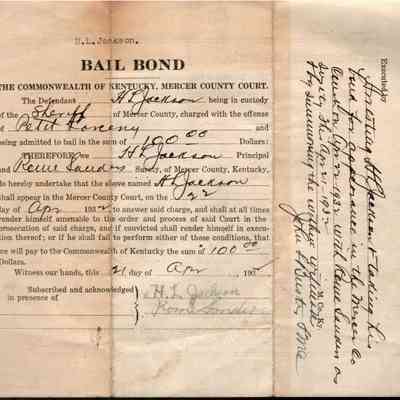 H.L. Jackson.
BAIL BOND
THE COMMONWEALTH OF KENTUCKY, MERCER COUNTY COURT.
The Defendant H L Jackson being in custody
of the Sheriff of Mercer County, charged with the offense
Petit Larceny and
being admitted to bail in the sum of 100.00 Dollars:
THEREFORE we H L Jackson Principal
and Surety, of Mercer County, Kentucky,
do hereby undertake that the above named H L Jackson
shall appear in the Mercer County Court, on the 22
day of Apr 1932 to answer said charge, and shall at all times
render himself amenable to the order and process of said Court in the
prosecution of said charge, and if convicted shall render himself in execu-
tion thereof; or if he shall fail to perform either of these conditions, that
we will pay to the Commonwealth of Kentucky the sum of $100.00
Dollars.
Witness our hands, this 21 day of Apr, 193
Subscribed and acknowledged
in presence of
H. L. Jackson
Executed by
Arresting H L Jackson & taking his
bond for appearance in the Mercer Co
Court on Apr 22-1932 with as
surety this Apr 21-1932
By summoning the within